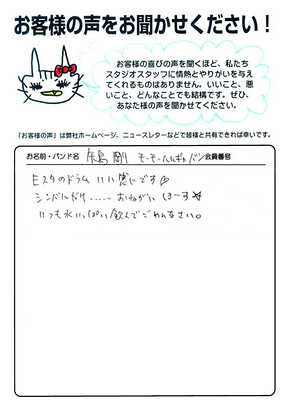 お客様の声をお聞かせください！
お客様の喜びの声を聞くほど、私たち
スタジオスタッフに情熱とやりがいを与え
てくれるものはありません。いいこと、悪
いこと、どんなことでも結構です。ぜひ、
あなた様の声を聞かせてください。
「お客様の声」は弊社ホームページ、ニュースレターなどで皆様と共有できれば幸いです。
お名前・バンド名 矢島 剛 モーモールルギャバン 会員番号
Eスタのドラム いい感じです
シンバルだけ……おねがいしまーす
いつも水いっぱい飲んでごめんなさい。